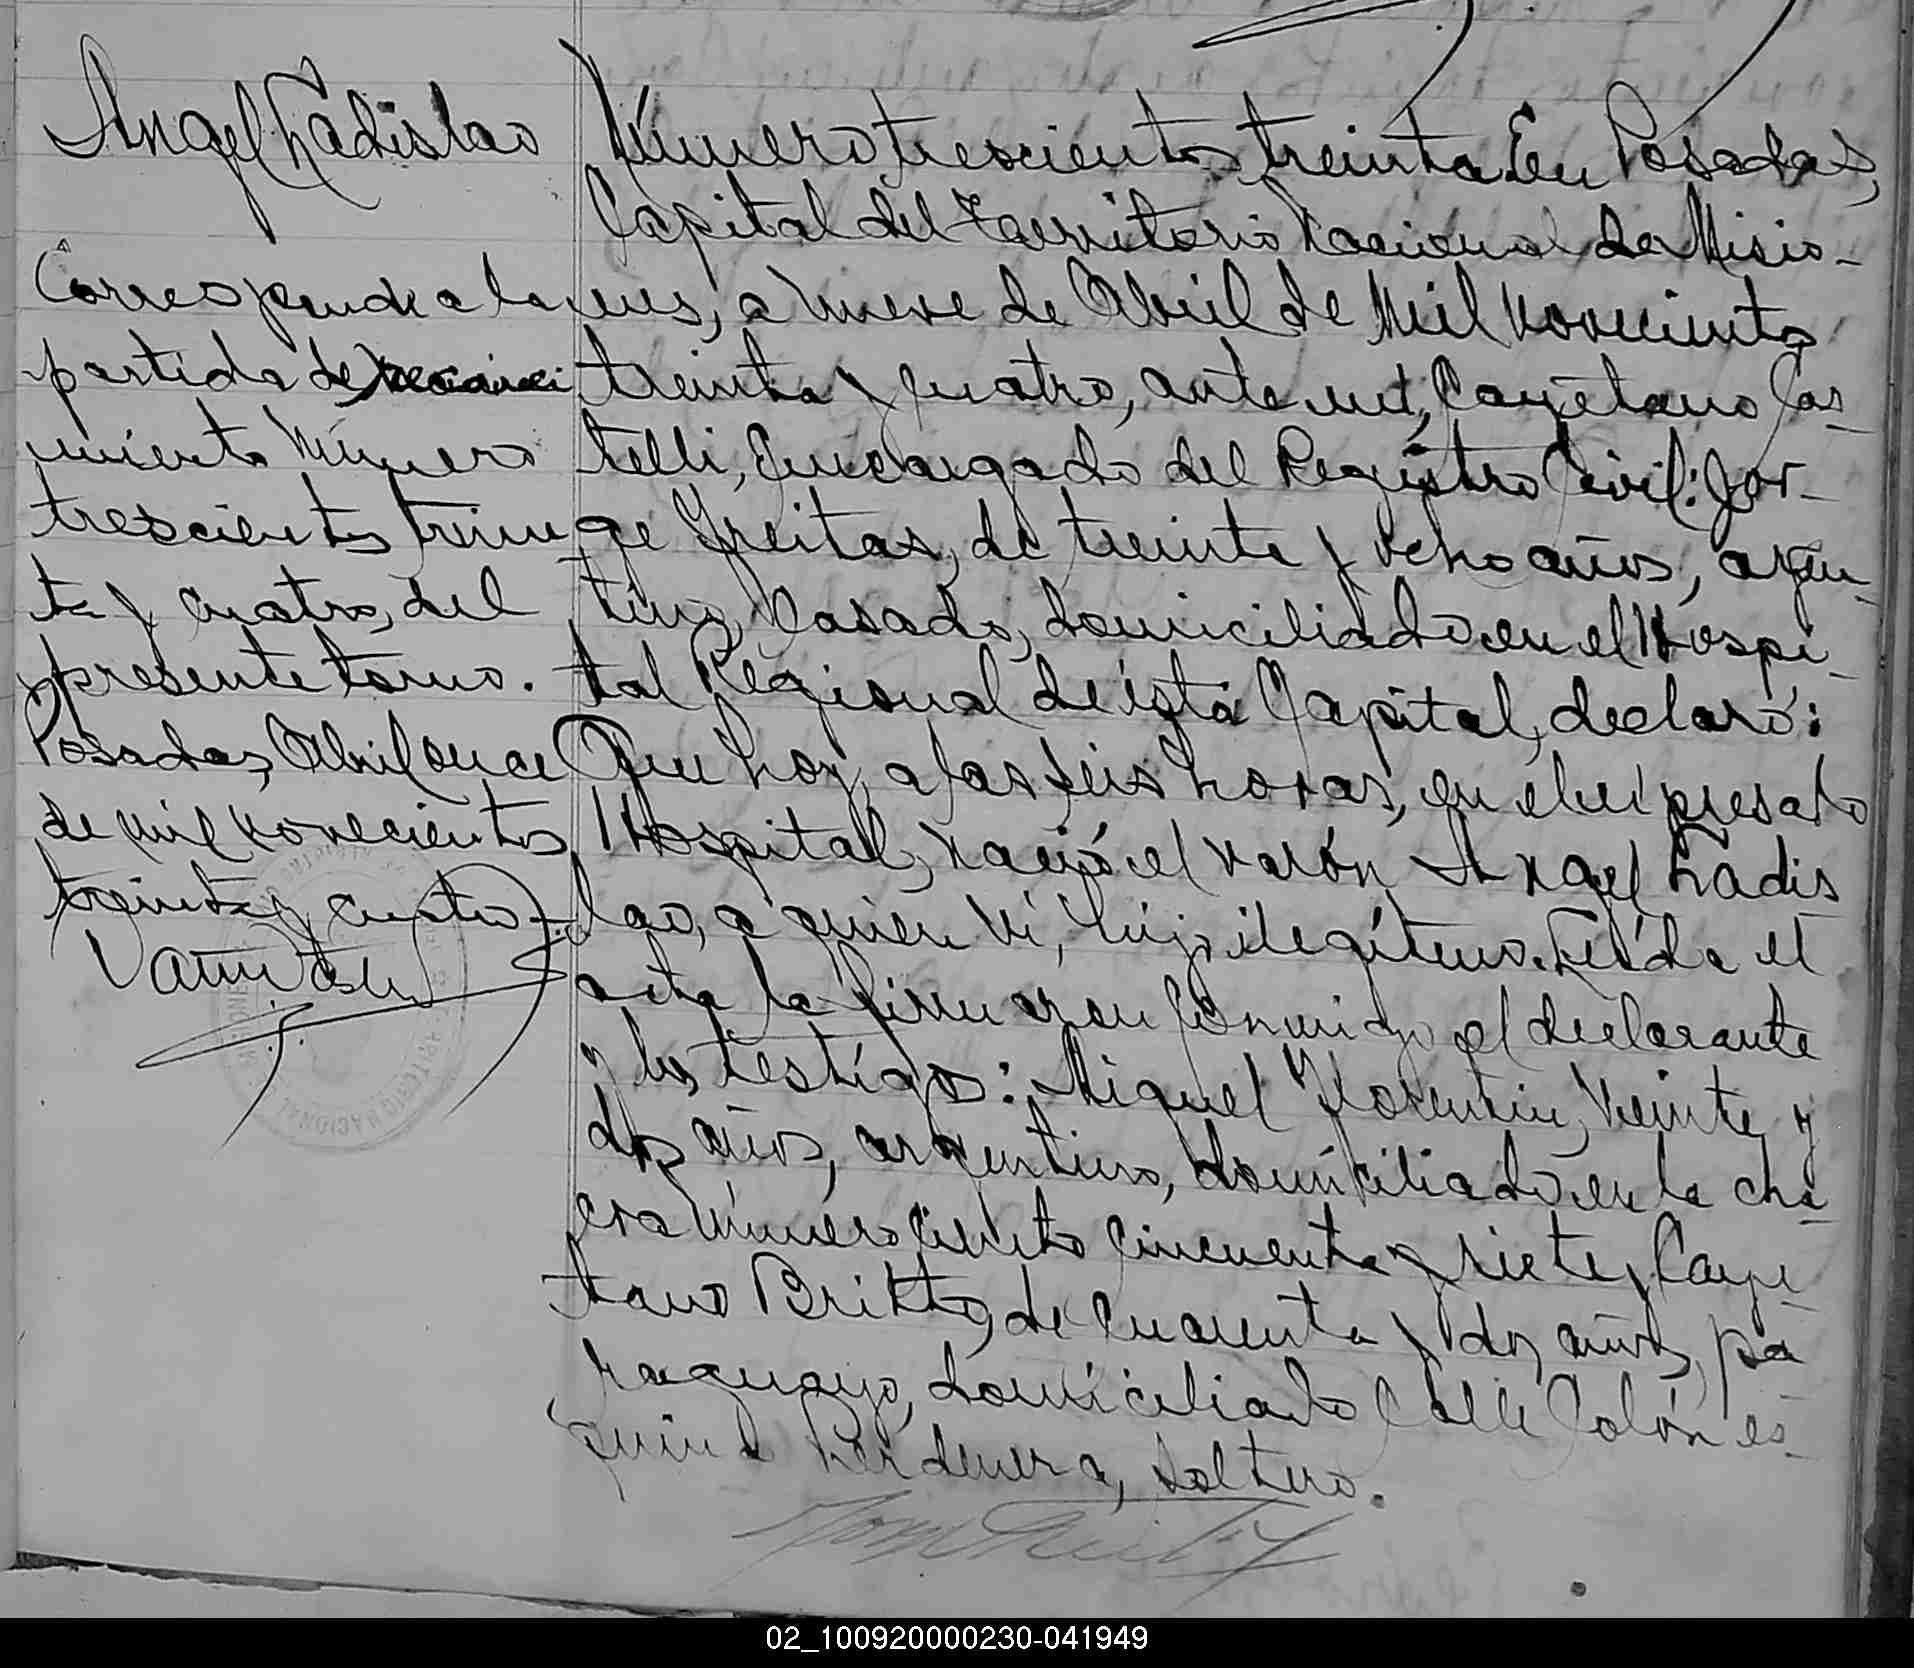 Angel Ladislao
Corresponde a la
partida de reconoci
miento Número
trescientos trein
ta y cuatro, del
presente tomo.
Posadas, Abril once
de mil novecientos
treinta y cuatro.-
Número trescientos treinta. En Posadas,
Capital del Territorio Nacional de Misio-
nes, a nueve de Abril de Mil novecientos
treinta y cuatro, ante mí, Cayetano Cas-
telli, Encargado del Registro Civil: Jor-
ge Freitas, de treinta y ocho años, argen-
tino, Casado, domiciliado en el Hospi-
tal Regional de ésta Capital, declaró:
Que hoy, a las seis horas, en el expresado
Hospital, nació el varón Angel Ladis
lao, a quien ví, hijo ilegítimo. Leída el
acta la firmaron conmigo el declarante
y los testigos: Miguel Florentin, veinte y
dos años, argentino, domiciliado en la cha-
cra número ciento cincuenta y siete y Caye-
tano Britto, de cuarenta y dos años, pa-
raguayo, domiciliado Calle Colón es-
quina Perdenera, soltero.
02_100920000230-041949